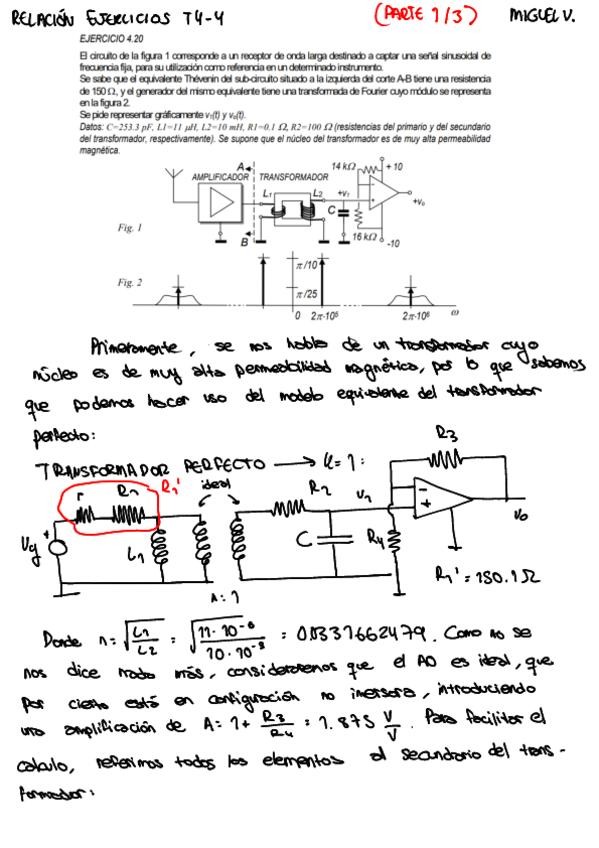 RELACIÓN EJERCICIOS T4-4 (PARTE 1/3) MIGUEL V.
EJERCICIO 4.20
El circuito de la figura 1 corresponde a un receptor de onda larga destinado a captar una señal sinusoidal de
frecuencia fija, para su utilización como referencia en un determinado instrumento.
Se sabe que el equivalente Thévenin del sub-circuito situado a la izquierda del corte A-B tiene una resistencia
de 150 Ω, y el generador del mismo equivalente tiene una transformada de Fourier cuyo módulo se representa
en la figura 2.
Se pide representar gráficamente v₁(t) y vₒ(t).
Datos: C=253.3 pF, L1=11 μH, L2=10 mH, R1=0.1 Ω, R2=100 Ω (resistencias del primario y del secundario
del transformador, respectivamente). Se supone que el núcleo del transformador es de muy alta permeabilidad
magnética.
A 14 kΩ + 10
AMPLIFICADOR TRANSFORMADOR
L₁ L₂ +v₁ +vₒ
C
Fig. 1
B 16 kΩ -10
π/10
Fig. 2
π/25
0 2π·10⁵ 2π·10⁶ ω
Primeramente, se nos habla de un transformador cuyo
núcleo es de muy alta permeabilidad magnética, por lo que sabemos
que podemos hacer uso del modelo equivalente del transformador
perfecto:
TRANSFORMADOR PERFECTO → k=1:
R3
r R1 R1' ideal R2 V1
Vg + L1 C R4 - + Vo
R1' = 150.1Ω
Donde n = √(L1/L2) = √(11·10⁻⁶/10·10⁻³) = 0.0331662479. Como no se
nos dice nada más, consideraremos que el AO es ideal, que
por cierto está en configuración no inversora, introduciendo
una amplificación de A = 1 + R3/R4 = 1.875 V/V. Para facilitar el
cálculo, referimos todos los elementos al secundario del trans-
formador: